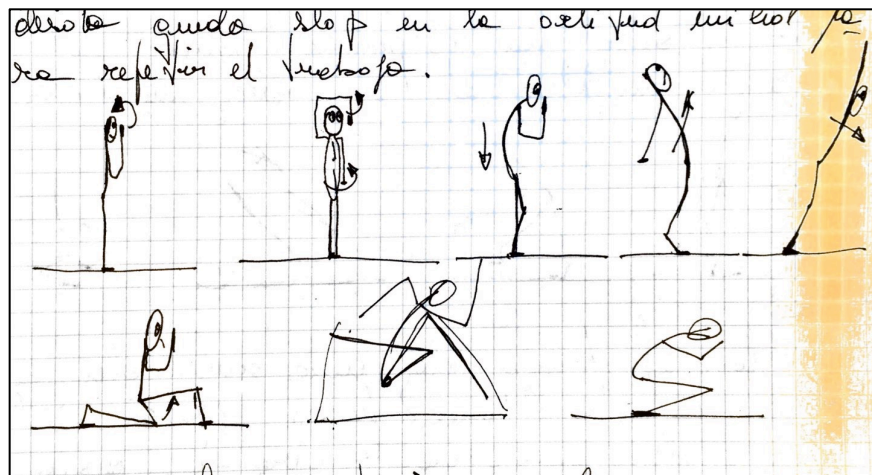 queda stop en la actitud inicial pa
ra repetir el trabajo.